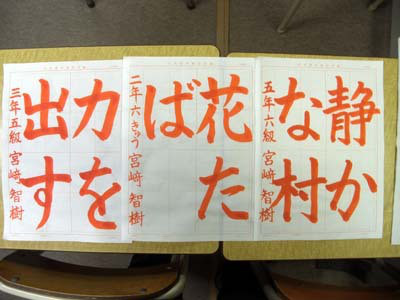 静か
な村
五年六級 宮崎 智樹
花た
ば
二年六きゅう 宮崎 智樹
力を
出す
三年五級 宮崎 智樹